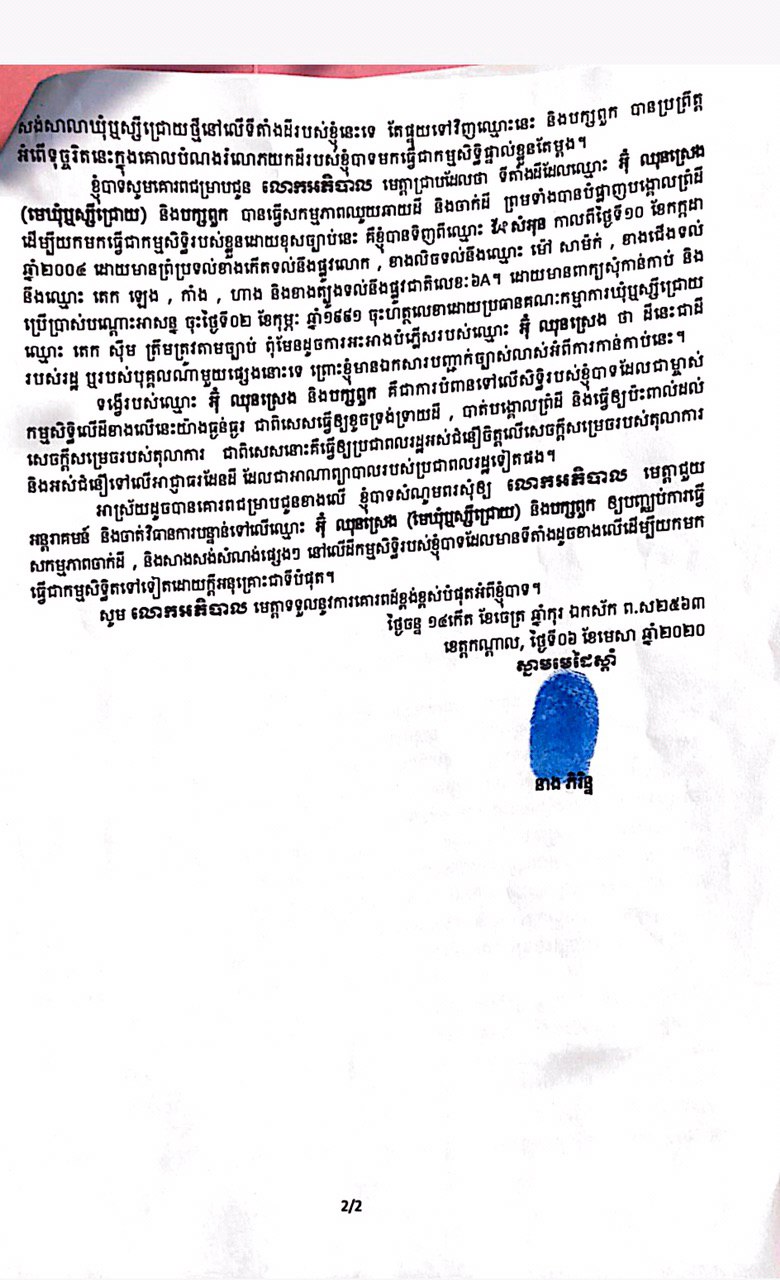 សង់សាលាឃុំឬស្សីជ្រោយថ្មីនៅលើទីតាំងដីរបស់ខ្ញុំនេះទេ តែផ្ទុយទៅវិញឈ្មោះនេះ និងបក្សពួក បានប្រព្រឹត្ត
អំពើទុច្ចរិតនេះក្នុងគោលបំណងរំលោភយកដីរបស់ខ្ញុំបាទមកធ្វើជាកម្មសិទ្ធិផ្ទាល់ខ្លួនតែម្តង។
ខ្ញុំបាទសូមគោរពជម្រាបជូន លោកអភិបាល មេត្តាជ្រាបដែលថា ទីតាំងដីដែលឈ្មោះ អ៊ុំ ឈុនស្រេង
(មេឃុំឬស្សីជ្រោយ) និងបក្សពួក បានធ្វើសកម្មភាពឈូយឆាយដី និងចាក់ដី ព្រមទាំងបានបំផ្លាញបង្គោលព្រំដី
ដើម្បីយកមកធ្វើជាកម្មសិទ្ធិរបស់ខ្លួនដោយខុសច្បាប់នេះ គឺខ្ញុំបានទិញពីឈ្មោះ សំអុន កាលពីថ្ងៃទី១០ ខែកក្កដា
ឆ្នាំ២០០៤ ដោយមានព្រំប្រទល់ខាងកើតទល់នឹងផ្លូវលោក , ខាងលិចទល់នឹងឈ្មោះ ម៉ៅ សាម៉ក់ , ខាងជើងទល់
នឹងឈ្មោះ តេក ឡេង , កាំង , ហាង និងខាងត្បូងទល់នឹងផ្លូវជាតិលេខ៖៦A។ ដោយមានពាក្យសុំកាន់កាប់ និង
ប្រើប្រាស់បណ្តោះអាសន្ន ចុះថ្ងៃទី០២ ខែកុម្ភៈ ឆ្នាំ១៩៩១ ចុះហត្ថលេខាដោយប្រធានគណៈកម្មាការឃុំឬស្សីជ្រោយ
ឈ្មោះ តេក ស៊ឹម ត្រឹមត្រូវតាមច្បាប់ ពុំមែនដូចការអះអាងបំភ្លើសរបស់ឈ្មោះ អ៊ុំ ឈុនស្រេង ថា ដីនេះជាដី
របស់រដ្ឋ ឬរបស់បុគ្គលណាមួយផ្សេងនោះទេ ព្រោះខ្ញុំមានឯកសារបញ្ជាក់ច្បាស់លាស់អំពីការកាន់កាប់នេះ។
ទង្វើរបស់ឈ្មោះ អ៊ុំ ឈុនស្រេង និងបក្សពួក គឺជាការបំពានទៅលើសិទ្ធិរបស់ខ្ញុំបាទដែលជាម្ចាស់
កម្មសិទ្ធិលើដីខាងលើនេះយ៉ាងធ្ងន់ធ្ងរ ជាពិសេសធ្វើឲ្យខូចទ្រង់ទ្រាយដី , បាត់បង្គោលព្រំដី និងធ្វើឲ្យប៉ះពាល់ដល់
សេចក្តីសម្រេចរបស់តុលាការ ជាពិសេសនោះគឺធ្វើឲ្យប្រជាពលរដ្ឋអស់ជំនឿចិត្តលើសេចក្តីសម្រេចរបស់តុលាការ
និងអស់ជំនឿទៅលើអាជ្ញាធរដែនដី ដែលជាអាណាព្យាបាលរបស់ប្រជាពលរដ្ឋទៀតផង។
អាស្រ័យដូចបានគោរពជម្រាបជូនខាងលើ ខ្ញុំបាទសំណូមពរសុំឲ្យ លោកអភិបាល មេត្តាជួយ
អន្តរាគមន៍ និងចាត់វិធានការបន្ទាន់ទៅលើឈ្មោះ អ៊ុំ ឈុនស្រេង (មេឃុំឬស្សីជ្រោយ) និងបក្សពួក ឲ្យបញ្ឈប់ការធ្វើ
សកម្មភាពចាក់ដី , និងសាងសង់សំណង់ផ្សេងៗ នៅលើដីកម្មសិទ្ធិរបស់ខ្ញុំបាទដែលមានទីតាំងដូចខាងលើដើម្បីយកមក
ធ្វើជាកម្មសិទ្ធិតទៅទៀតដោយក្តីអនុគ្រោះជាទីបំផុត។
សូម លោកអភិបាល មេត្តាទទួលនូវការគោរពដ៏ខ្ពង់ខ្ពស់បំផុតអំពីខ្ញុំបាទ។
ថ្ងៃចន្ទ ១៤កើត ខែចេត្រ ឆ្នាំកុរ ឯកស័ក ព.ស២៥៦៣
ខេត្តកណ្តាល, ថ្ងៃទី០៦ ខែមេសា ឆ្នាំ២០២០
ស្នាមមេដៃស្តាំ
នាង ភិរិន្ទ
2/2